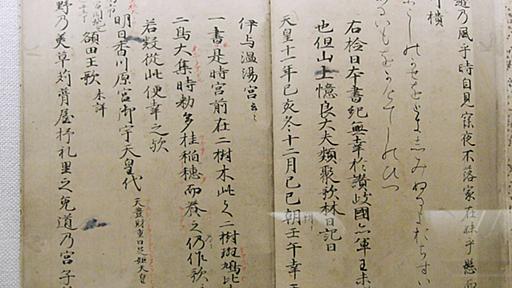 乃風乎時自見寐夜不落家在妹乎懸而
こしのかせをときしみぬるよおちすい
るいもをかけてしのひつ
右檢日本書紀無幸於讃岐國亦軍王未
也但山上憶良大夫類聚歌林曰記曰
天皇十一年己亥冬十二月己巳朔壬午幸
伊与温湯宮云々
一書是時宮前在二樹木此之二樹斑鳩比
二鳥大集時勅多挂稲穂而養之仍作歌
若疑從此便幸之歟
明日香川原宮御宇天皇代 天豊財重日足姫天皇
額田王歌 未詳
野乃美草苅葺屋杼礼里之兎道乃宮子